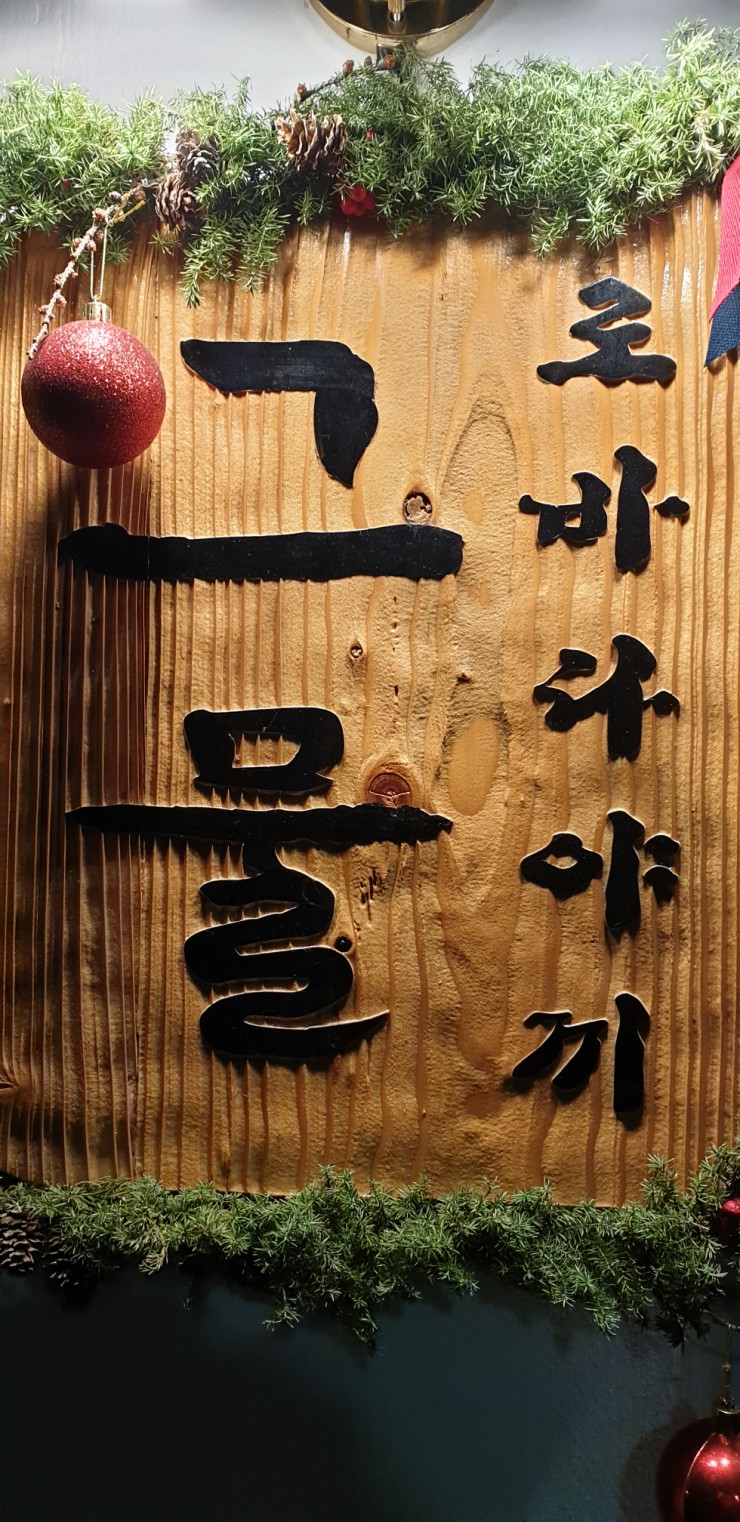 로바다야끼
그물